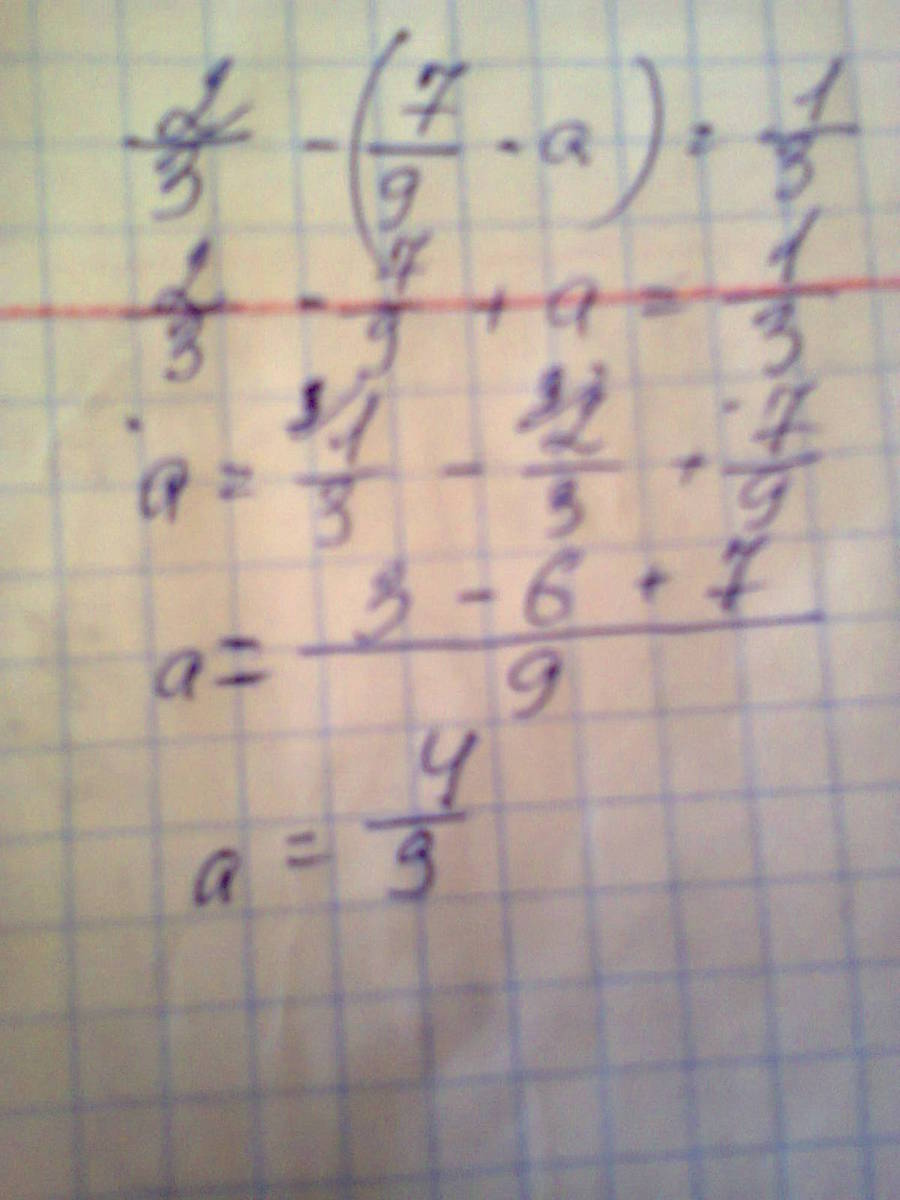 2/3 - (7/9 - a) = 1/3
2/3 - 7/9 + a = 1/3
a = 3/ 1/3 - 3/ 2/3 + 7/9
a = (3 - 6 + 7)/9
a = 4/9